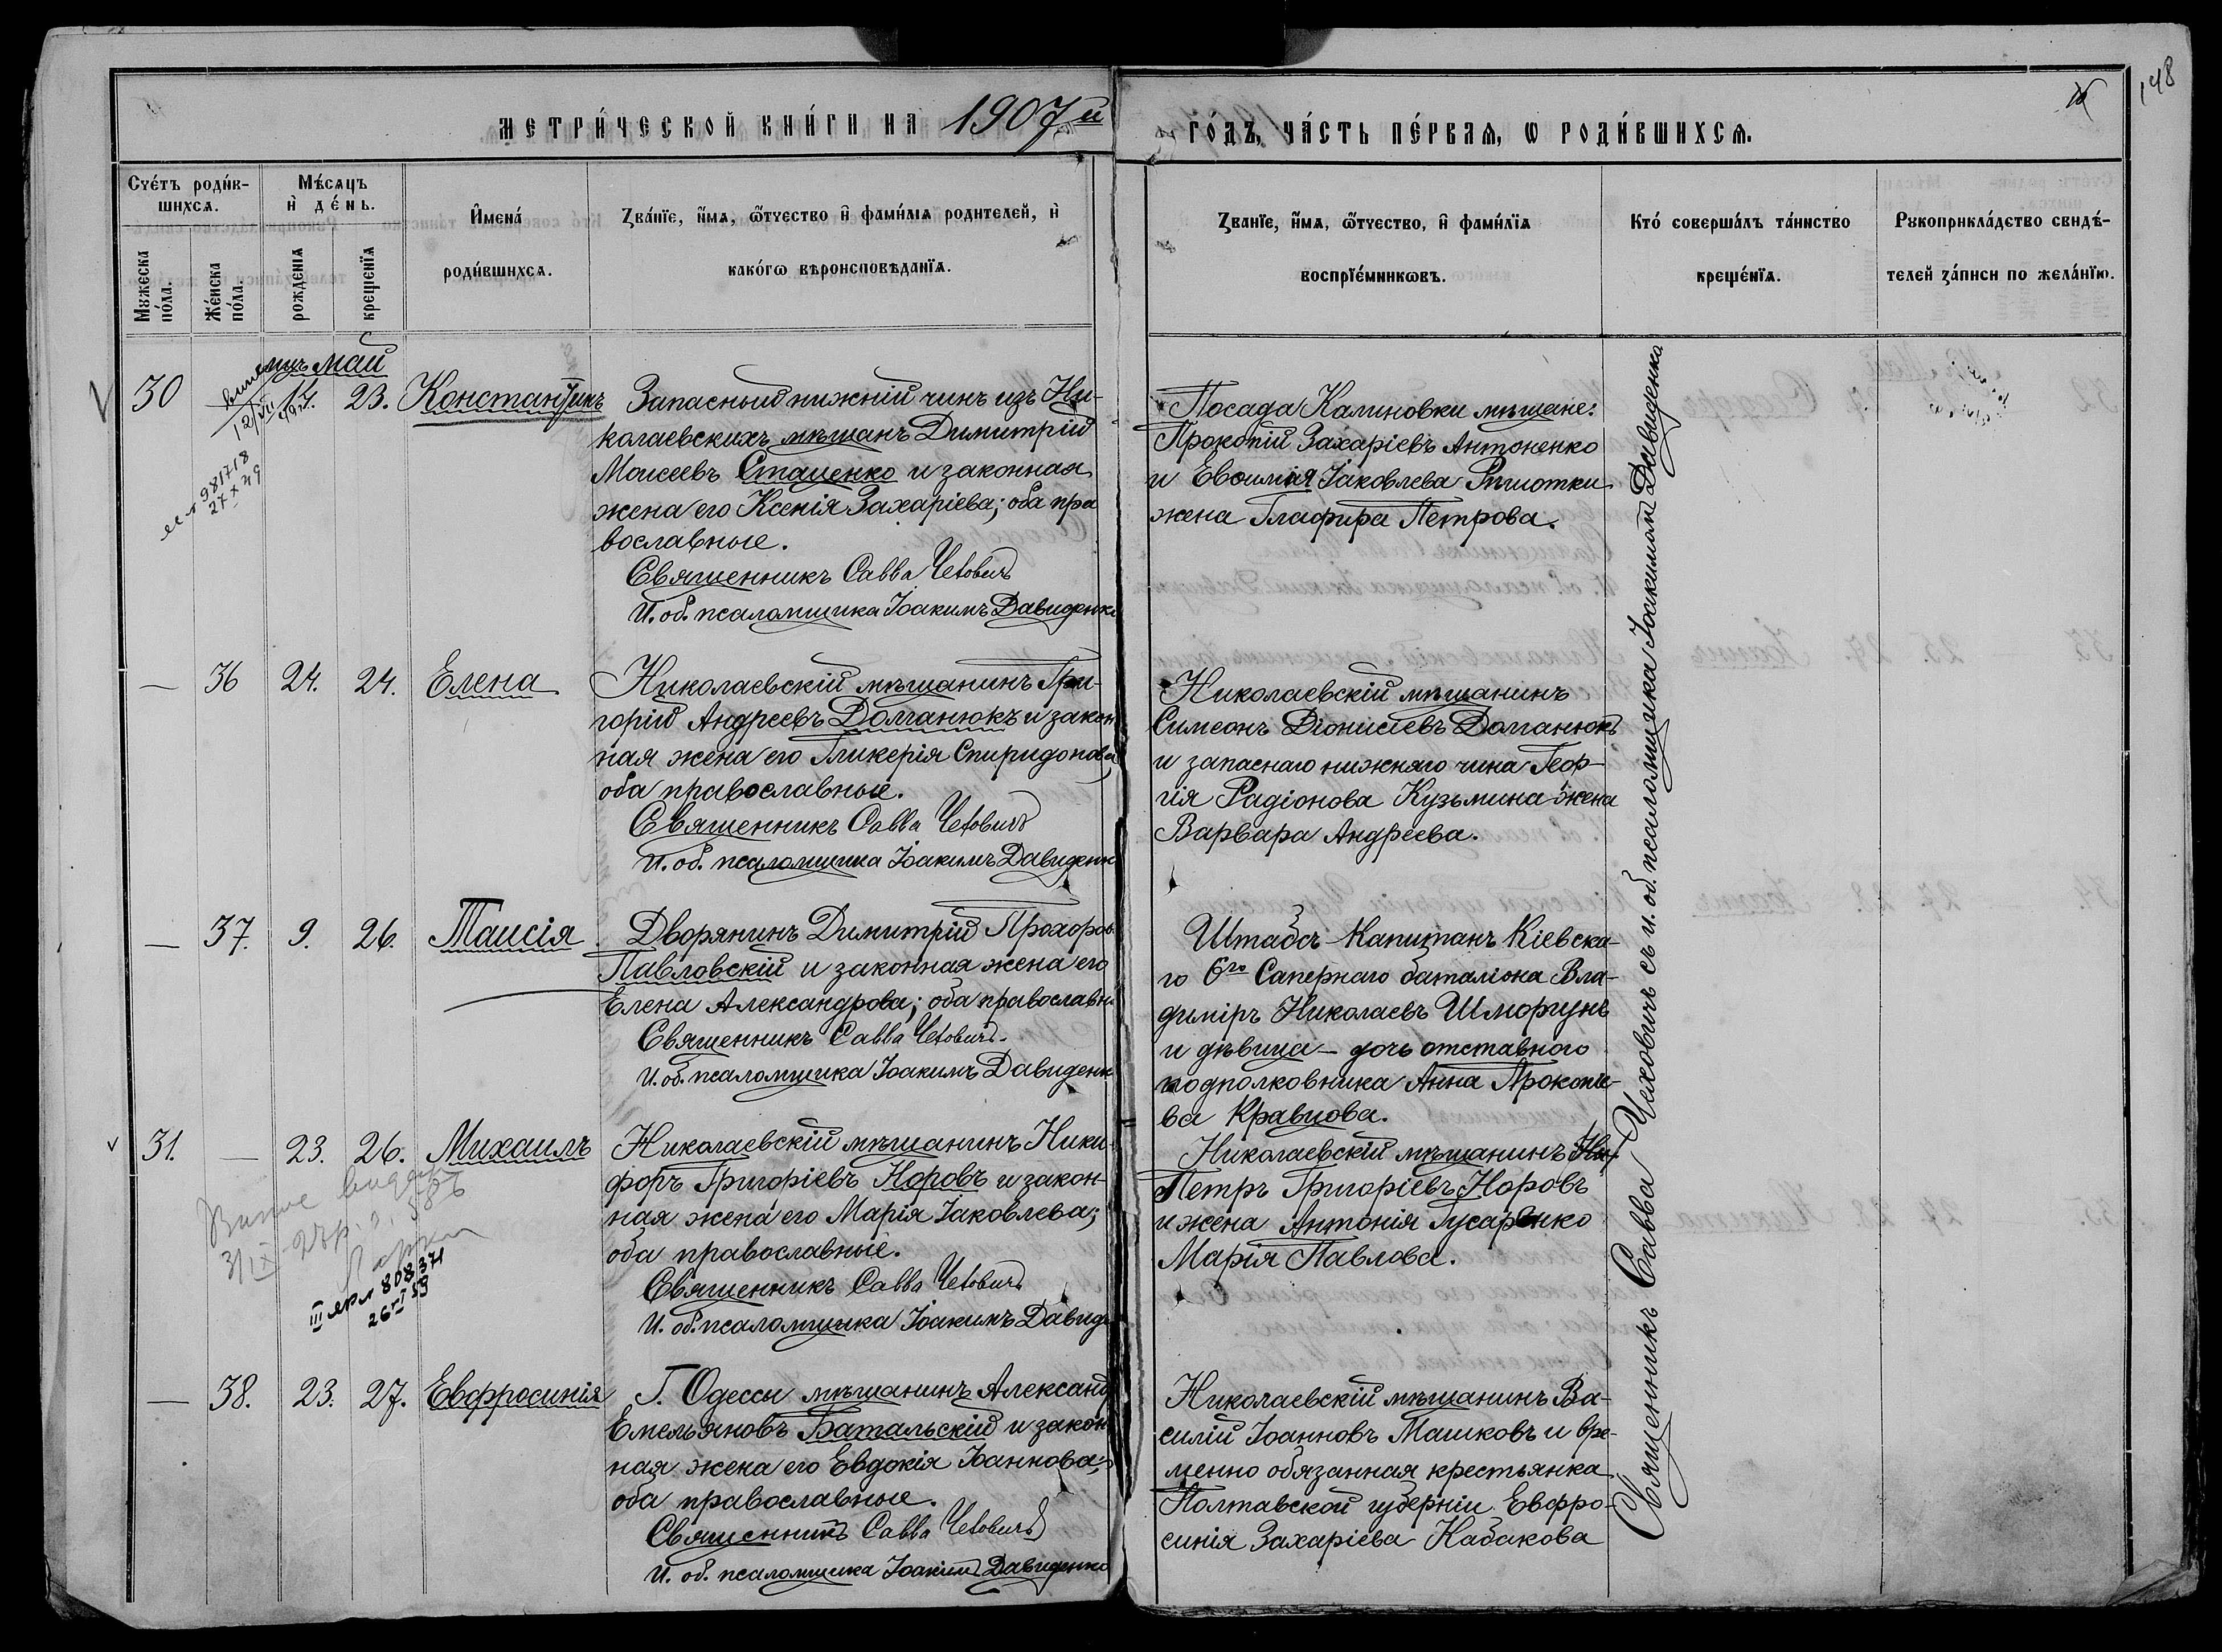 148
МЕТРИ́ЧЕСКОЙ КНИ́ГИ НА 1907й
ГО́ДЪ, ЧА́СТЬ ПЕ́РВАЯ, Ѡ РОДИ́ВШИХСЯ.
Сче́тъ роди́в-
шихся.
Мужеска
по́ла.
Же́нска
по́ла.
Мѣ́сяцъ
и҆ де́нь.
рожденія
крещенїя
И҆мена́
роди́вшихся.
Зва́нїе, и҆́мя, ѻ҆́тчество и҆ фами́лїя родителей, и҆
како́гѡ вѣроисповѣданїя.
Званїе, и҆́мя, ѻ҆́тчество, и҆ фами́лїя
воспрїе́мниковъ.
Кто́ соверша́лъ та́инство
креще́нїя.
Рукоприкла́дство свидѣ́-
телей за́писи по жела́нїю.
мць май
30
14.
23.
Константинъ
981718
27 X 49
Запасный нижній чинъ изъ Ни-
колаевскихъ мѣщанъ Димитрій
Моисеевъ Стаценко и законная
жена его Ксенія Захаріева; оба пра
вославные.
Священникъ Савва Чехович
И. об. псаломщика Іоакимъ Давиденко
Посада Калиновки мѣщане:
Прокопій Захаріевъ Антоненко
и Евѳимія Іаковлева
жена Глафира Петрова.
—
36
24.
24.
Елена
Николаевскій мѣщанинъ Гри-
горій Андреевъ Долганюкъ и закон
ная жена его Гликерія Спиридонова;
оба православные.
Священникъ Савва Чехович
И. об. псаломщика Іоакимъ Давиденк
Николаевскій мѣщанинъ
Симеонъ Діонисіевъ Долганюкъ
и запаснаго нижняго чина Геор-
гія Радіонова Кузьмина жена
Варвара Андреева.
—
37.
9.
26.
Таисія
Дворянинъ Димитрій Прохоров
Павловскій и законная жена его
Елена Александрова; оба православн
Священникъ Савва Чехович
И. об. псаломщика Іоакимъ Давиденк
Штабсъ-Капитанъ Кіевска-
го 6го Сапернаго баталіона Вла-
диміръ Николаевъ Шморгунъ
и дѣвица — дочь отставного
подполковника Анна Прокопіе-
ва Кравцова.
31.
—
23.
26.
Михаилъ
III 808371
Николаевскій мѣщанинъ Ники
форъ Григоріевъ Норовъ и закон-
ная жена его Марія Іаковлева;
оба православные.
Священникъ Савва Чехович
И. об. псаломщика Іоакимъ Давид
Николаевскій мѣщанинъ
Петръ Григоріевъ Норовъ
и жена Антонія Гусаренко
Марія Павлова.
—
38.
23.
27.
Евфросинія
Г. Одессы мѣщанинъ Александ
Емельяновъ Батальскій и закон
ная жена его Евдокія Іоаннова;
оба православные.
Священникъ Савва Чехович
И. об. псаломщика Іоакимъ Давиденко
Николаевскій мѣщанинъ Ва-
силій Іоанновъ Машковъ и вре-
менно обязанная крестьянка
Полтавской губерніи Евфро-
синія Захаріева Кабакова
Священникъ Савва Чеховичъ съ и. об. псаломщика Іоакимомъ Давиденко